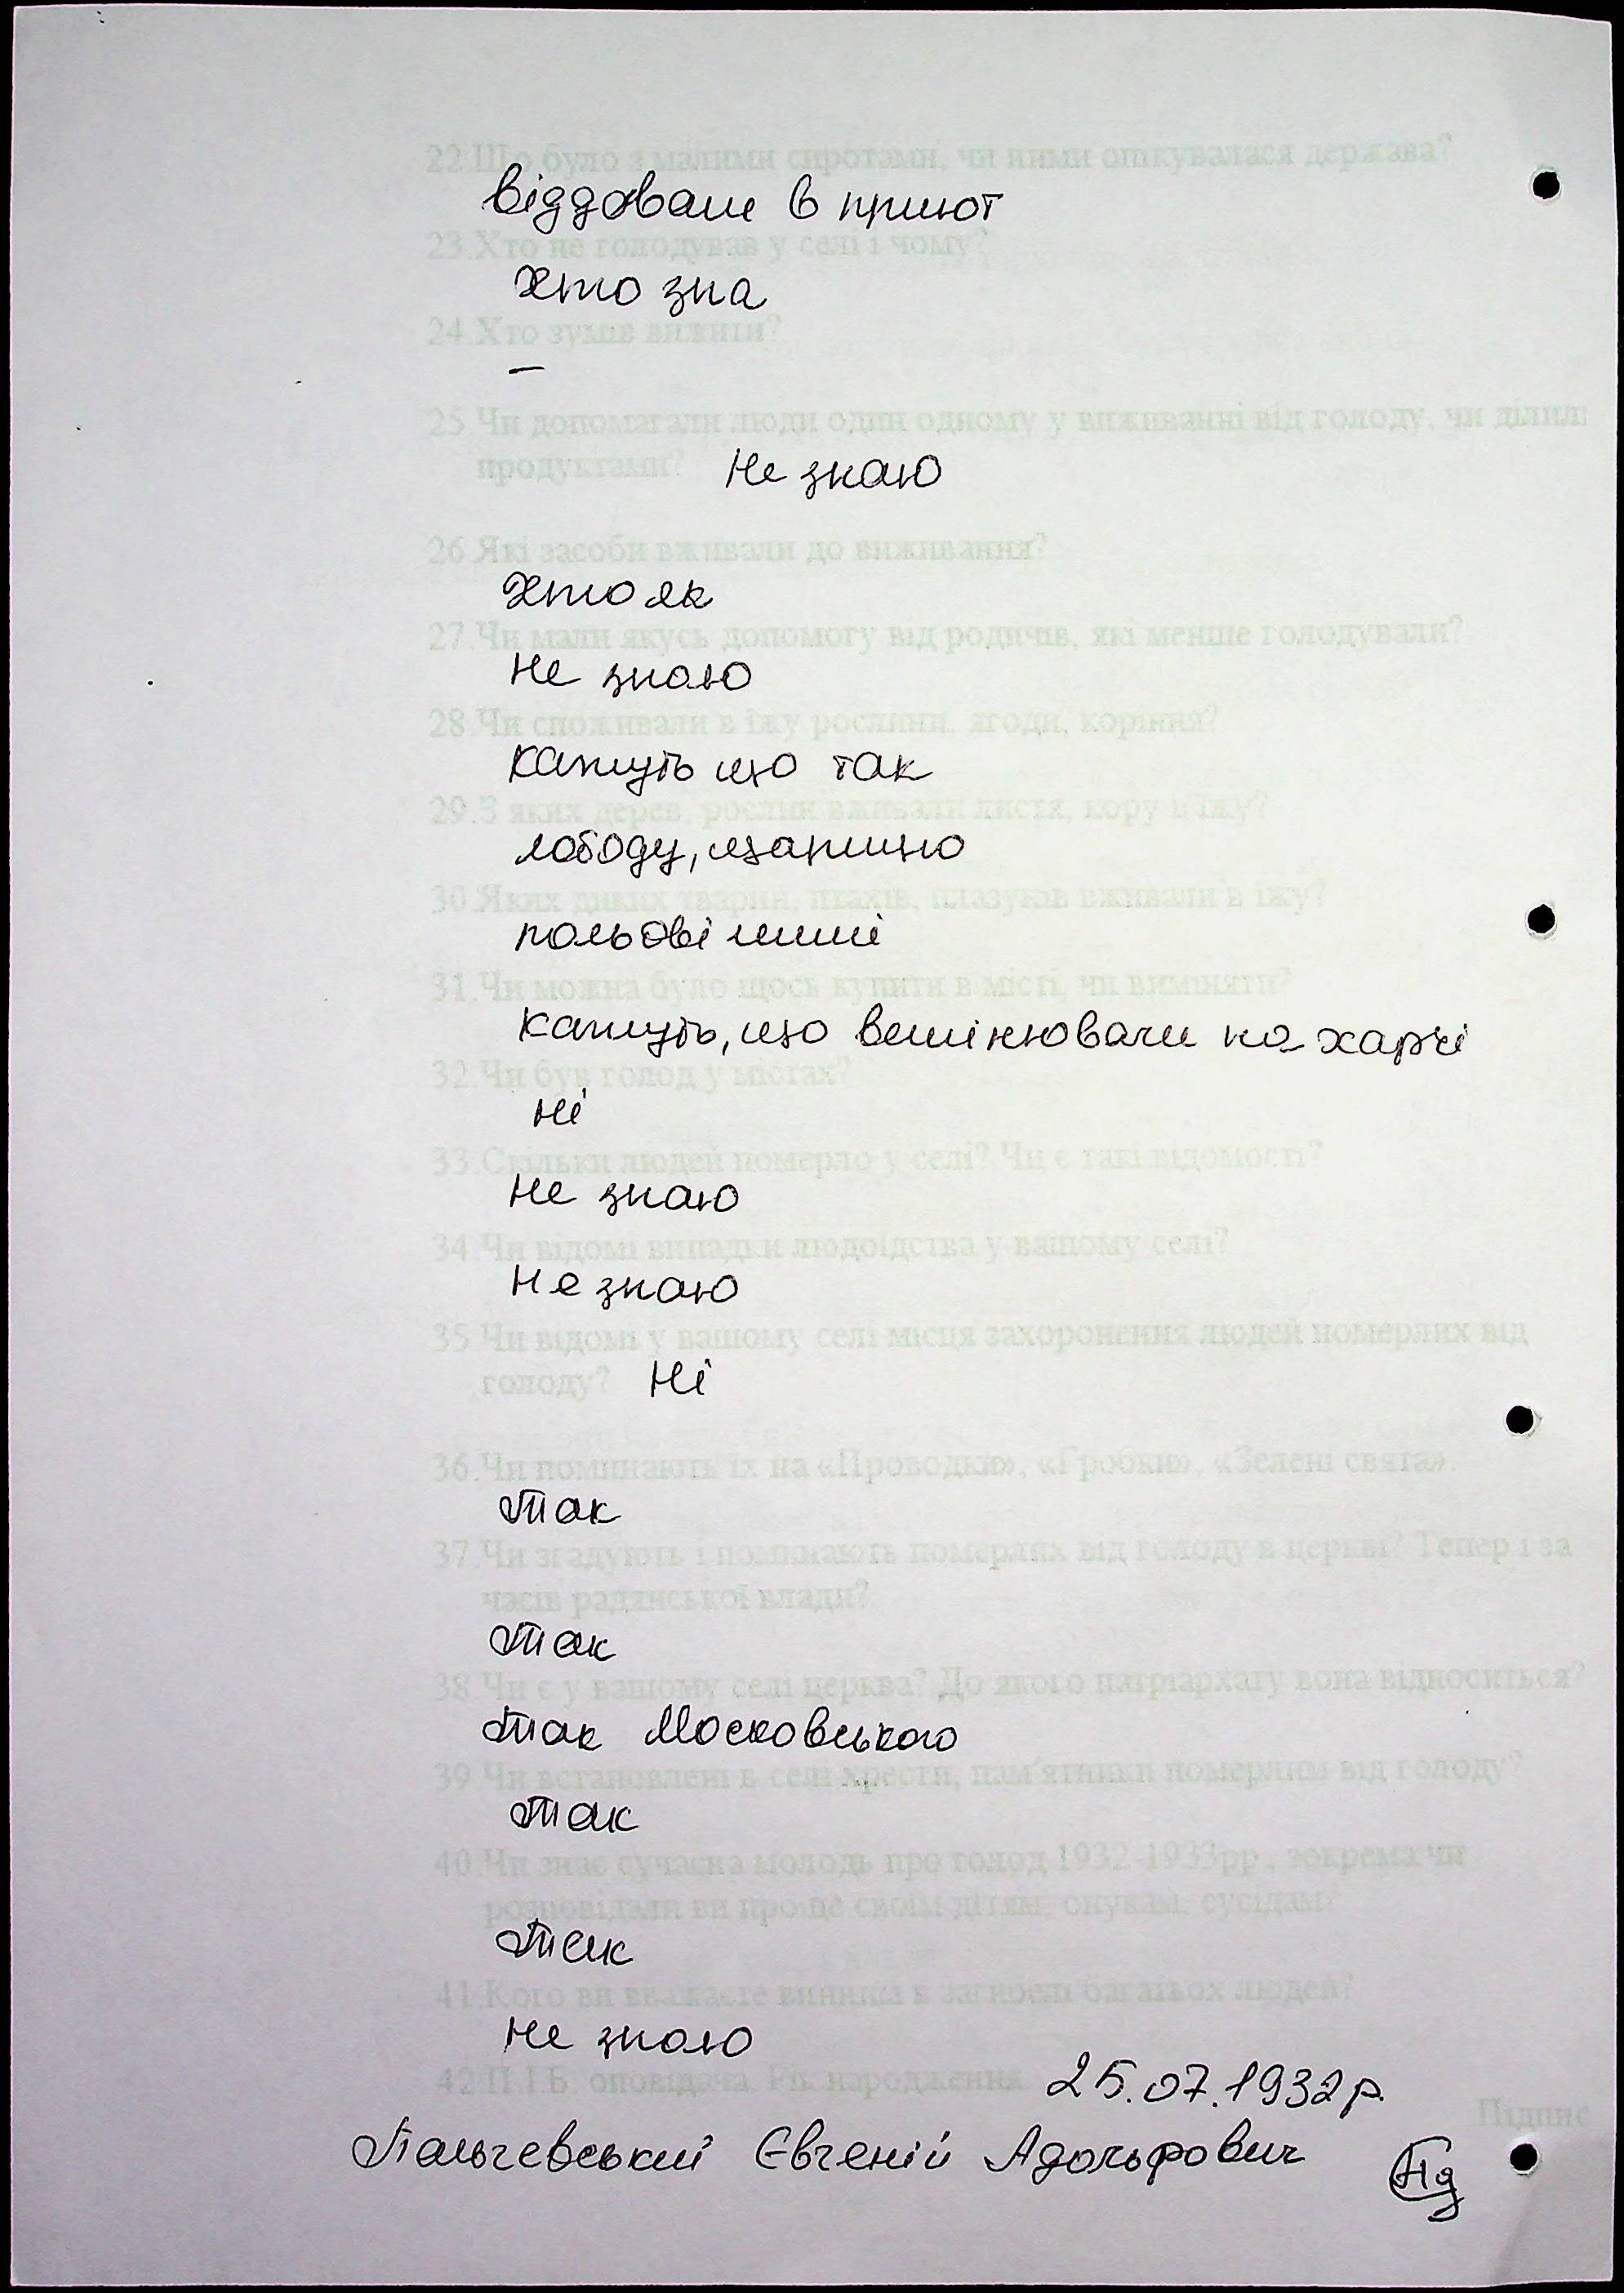 22.Що було з малими сиротами, чи ними опікувалася держава?
віддавали в приют
23.Хто не голодував у селі і чому?
хто зна
24.Хто зумів вижити?
–
25.Чи допомагали люди один одному у виживанні від голоду, чи ділили
продуктами? Не знаю
26.Які засоби вживали до виживання?
хто як
27.Чи мали якусь допомогу від родичів, які менше голодували?
Не знаю
28.Чи споживали в їжу рослини, ягоди, коріння?
кажуть що так
29.З яких дерев, рослин вживали листя, кору в їжу?
лободу, щавлицю
30.Яких диких тварин, птахів, плазунів вживали в їжу?
польові миші
31.Чи можна було щось купити в місті, чи виміняти?
кажуть, що вимінювали на харчі
32.Чи був голод у містах?
Ні
33.Скільки людей померло у селі? Чи є такі відомості?
Не знаю
34.Чи відомі випадки людоїдства у вашому селі?
Не знаю
35.Чи відомі у вашому селі місця захоронення людей померлих від
голоду? Ні
36.Чи поминають їх на «Проводки», «Гробки», «Зелені свята».
Так
37.Чи згадують і поминають померлих від голоду в церкві? Тепер і за
часів радянської влади?
Так
38.Чи є у вашому селі церква? До якого патріархату вона відноситься?
Так Московського
39.Чи встановлені в селі хрести, пам'ятники померлим від голоду?
Так
40.Чи знає сучасна молодь про голод 1932-1933рр., зокрема чи
розповідали ви про це своїм дітям, онукам, сусідам?
Так
41.Кого ви вважаєте винним в загибелі багатьох людей?
Не знаю
42.П.І.Б. оповідача. Рік народження 25.07.1932 р.
Підпис
Пальчевський Євгеній Адольфович